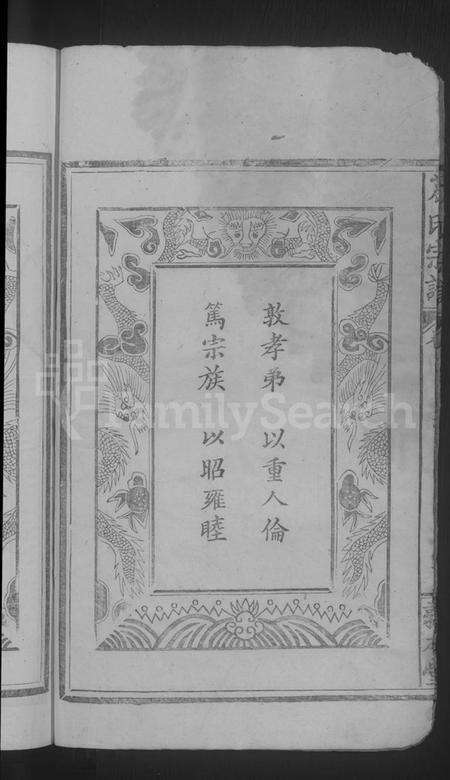 敦孝弟　以重人倫
篤宗族　以昭雍睦
氏宗譜
FamilySearch